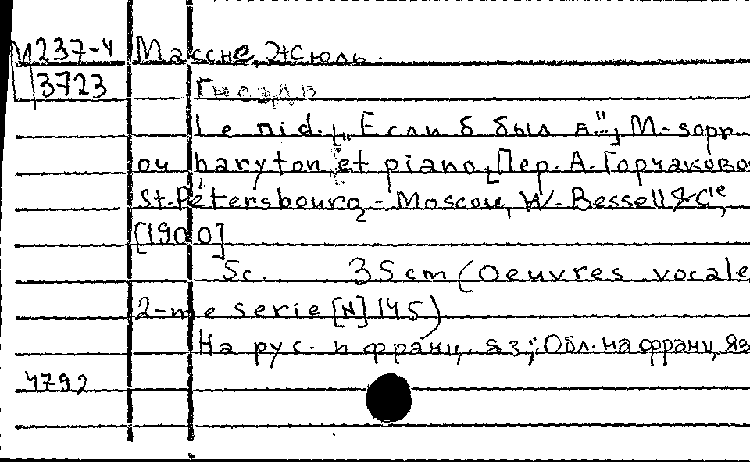 М237-4 Массне, Жюль.
3723 Гнездо
Le nid. „Если б был я", M-sopr.
ou baryton et piano, [Пер. А. Горчаково
St.-Pétersbourg - Moscou, W. Bessell & Cie,
[1900]
5c. 35cm (Oeuvres vocale
2-me serie [N] 145)
На рус. и франц. яз.; Обл. на франц. яз
4792